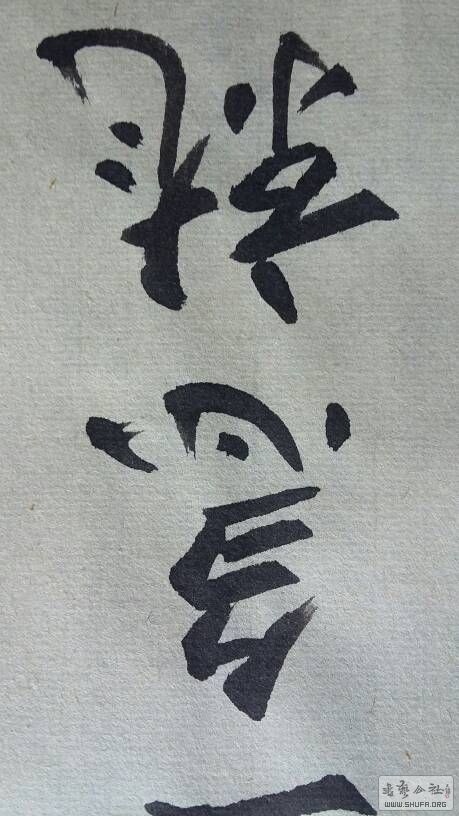 一息
书艺公社
WWW.SHUFA.ORG